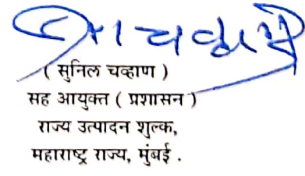 ( सुनिल चव्हाण )
सह आयुक्त ( प्रशासन )
राज्य उत्पादन शुल्क,
महाराष्ट्र राज्य, मुंबई .